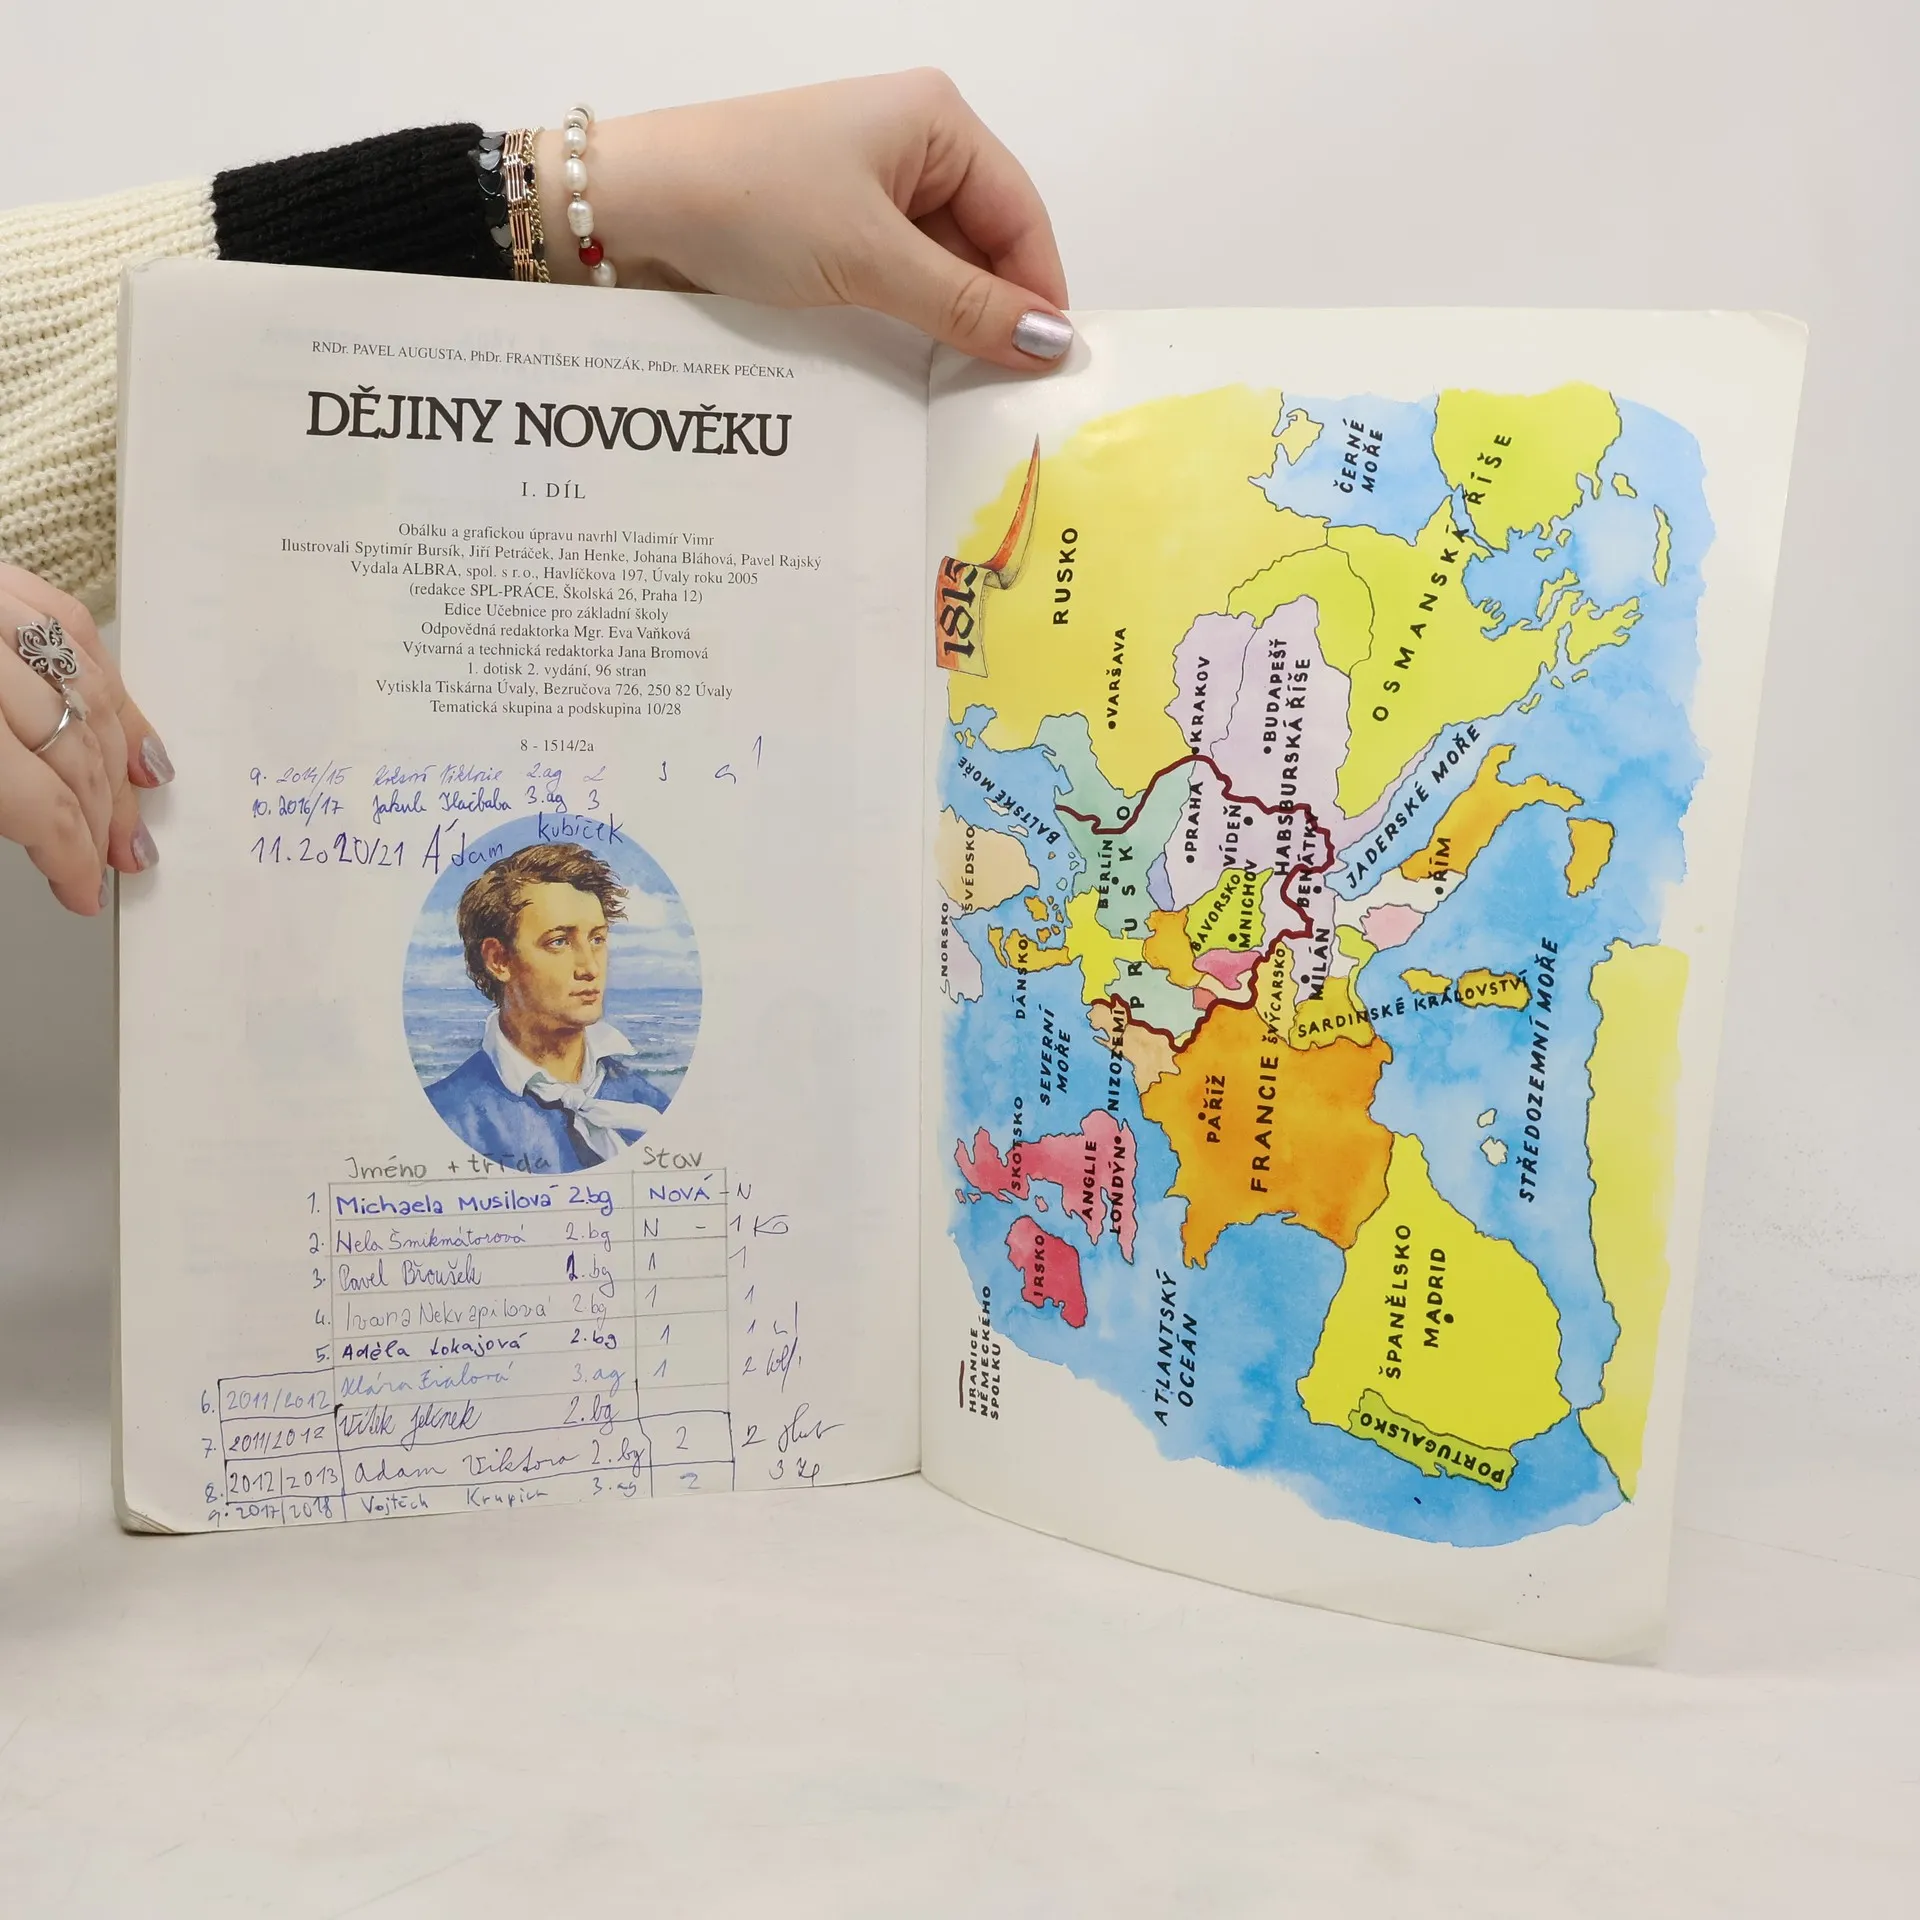 RNDr. PAVEL AUGUSTA, PhDr. FRANTIŠEK HONZÁK, PhDr. MAREK PEČENKA
DĚJINY NOVOVĚKU
I. DÍL
Obálku a grafickou úpravu navrhl Vladimír Vimr
Ilustrovali Spytimír Bursík, Jiří Petráček, Jan Henke, Johana Bláhová, Pavel Rajský
Vydala ALBRA, spol. s r.o., Havlíčkova 197, Úvaly roku 2005
(redakce SPL-PRÁCE, Školská 26, Praha 12)
Edice Učebnice pro základní školy
Odpovědná redaktorka Mgr. Eva Vaňková
Výtvarná a technická redaktorka Jana Bromová
1. dotisk 2. vydání, 96 stran
Vytiskla Tiskárna Úvaly, Bezručova 726, 250 82 Úvaly
Tematická skupina a podskupina 10/28
8 - 1514/2a
9. 2014/15 2.ag 2 3 1
10. 2016/17 Jakub 3.ag 3
11. 2020/21 Ádam Kubíček
Jméno + třída Stav
1. Michaela Musilová 2.bg NOVÁ - N
2. Nela Šmikmátorová 2.bg N - 1
3. Pavel Broušek 2.bg 1 1
4. Ivana Nekvapilová 2.bg 1 1
5. Adéla Lokajová 2.bg 1 1
6. 2011/2012 Klára 3.ag 1 2
7. 2011/2012 2.bg
8. 2012/2013 Adam Viktora 2.bg 2 2
9. 2017/2018 Vojtěch 3.ag 2 3
1815
RUSKO
ČERNÉ
MOŘE
OSMANSKÁ ŘÍŠE
VARŠAVA
KRAKOV
BUDAPEŠŤ
HABSBURSKÁ ŘÍŠE
BALTSKÉ MOŘE
PRAHA
VÍDEŇ
JADERSKÉ MOŘE
ŠVÉDSKO
NORSKO
BERLÍN
PRUSKO
BAVORSKO
MNICHOV
BENÁTKY
ŘÍM
DÁNSKO
MILÁN
ŠVÝCARSKO
SARDINSKÉ KRÁLOVSTVÍ
STŘEDOZEMNÍ MOŘE
SEVERNÍ
MOŘE
NIZOZEMÍ
PAŘÍŽ
FRANCIE
SKOTSKO
ANGLIE
LONDÝN
IRSKO
ATLANTSKÝ
OCEÁN
ŠPANĚLSKO
MADRID
PORTUGALSKO
HRANICE
NĚMECKÉHO
SPOLKU